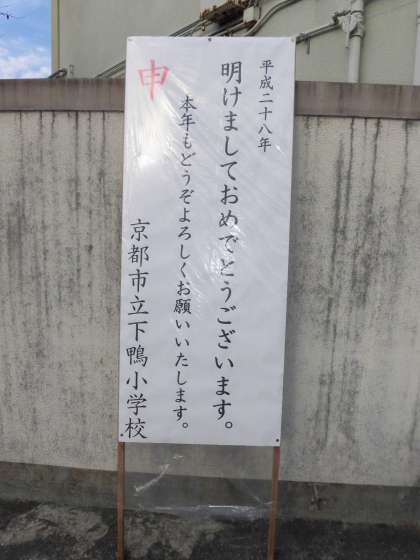 平成二十八年
明けましておめでとうございます。
本年もどうぞよろしくお願いいたします。
申
京都市立下鴨小学校